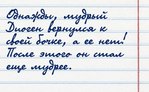 Однажды, мудрый
Диоген вернулся к
своей бочке, а ее нет!
После этого он стал
еще мудрее.